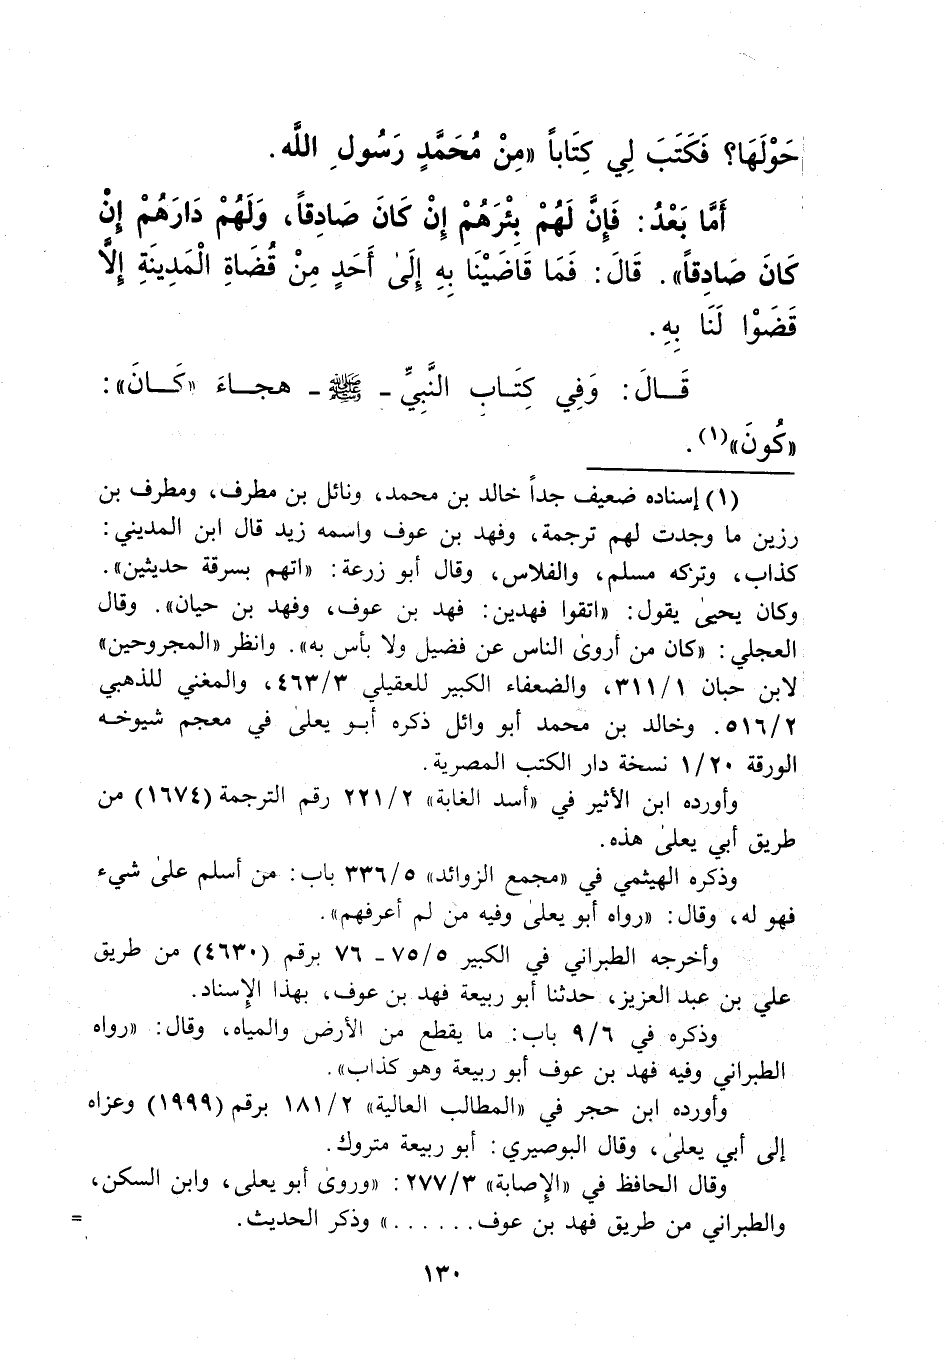 حَوْلَهَا؟ فَكَتَبَ لِي كِتَاباً «مِنْ مُحَمَّدٍ رَسُولِ اللَّه.
أَمَّا بَعْدُ: فَإِنَّ لَهُمْ بِئْرَهُمْ إِنْ كَانَ صَادِقاً، وَلَهُمْ دَارَهُمْ إِنْ
كَانَ صَادِقاً». قَالَ: فَمَا قَاضَيْنَا بِهِ إِلَىٰ أَحَدٍ مِنْ قُضَاةِ الْمَدِينَةِ إِلَّا
قَضَوْا لَنَا بِهِ.
قَالَ: وَفِي كِتَابِ النَّبِيِّ - ﷺ - هجاءَ «كَانَ»:
«كُونَ»(١).
(١) إسناده ضعيف جداً خالد بن محمد، ونائل بن مطرف، ومطرف بن
رزين ما وجدت لهم ترجمة، وفهد بن عوف واسمه زيد قال ابن المديني:
كذاب، وتركه مسلم، والفلاس، وقال أبو زرعة: «اتهم بسرقة حديثين».
وكان يحيىٰ يقول: «اتقوا فهدين: فهد بن عوف، وفهد بن حيان». وقال
العجلي: «كان من أروىٰ الناس عن فضيل ولا بأس به». وانظر «المجروحين»
لابن حبان ٣١١/١، والضعفاء الكبير للعقيلي ٤٦٣/٣، والمغني للذهبي
٥١٦/٢. وخالد بن محمد أبو وائل ذكره أبو يعلىٰ في معجم شيوخه
الورقة ١/٢٠ نسخة دار الكتب المصرية.
وأورده ابن الأثير في «أسد الغابة» ٢٢١/٢ رقم الترجمة (١٦٧٤) من
طريق أبي يعلىٰ هذه.
وذكره الهيثمي في «مجمع الزوائد» ٣٣٦/٥ باب: من أسلم علىٰ شيء
فهو له، وقال: «رواه أبو يعلىٰ وفيه من لم أعرفهم».
وأخرجه الطبراني في الكبير ٧٥/٥ - ٧٦ برقم (٤٦٣٠) من طريق
علي بن عبد العزيز، حدثنا أبو ربيعة فهد بن عوف، بهذا الإسناد.
وذكره في ٩/٦ باب: ما يقطع من الأرض والمياه، وقال: «رواه
الطبراني وفيه فهد بن عوف أبو ربيعة وهو كذاب».
وأورده ابن حجر في «المطالب العالية» ١٨١/٢ برقم (١٩٩٩) وعزاه
إلى أبي يعلىٰ، وقال البوصيري: أبو ربيعة متروك.
وقال الحافظ في «الإصابة» ٢٧٧/٣: «وروىٰ أبو يعلى، وابن السكن،
والطبراني من طريق فهد بن عوف.......» وذكر الحديث. =
١٣٠